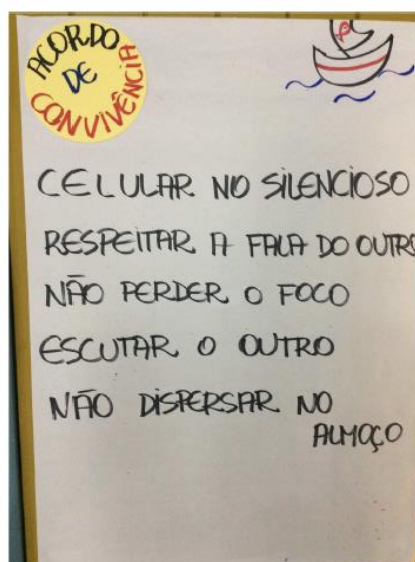 ACORDO
DE
CONVIVÊNCIA
P
CELULAR NO SILENCIOSO
RESPEITAR A FALA DO OUTRO
NÃO PERDER O FOCO
ESCUTAR O OUTRO
NÃO DISPERSAR NO
ALMOÇO